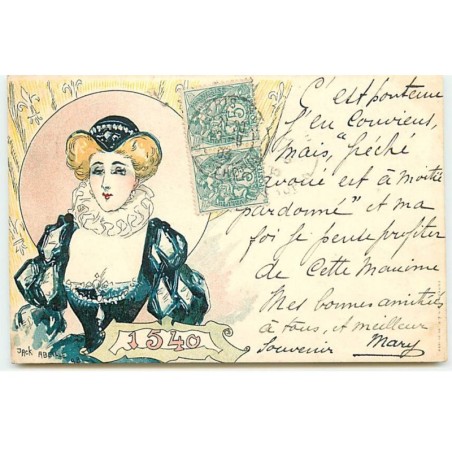 C'est honteux
j'en conviens,
mais, "péché
avoué est à moitié
pardonné" et ma
foi je pense profiter
de cette maxime
Mes bonnes amitiés
à tous, et meilleur
souvenir Mary
1540
JACK ABEILLÉ